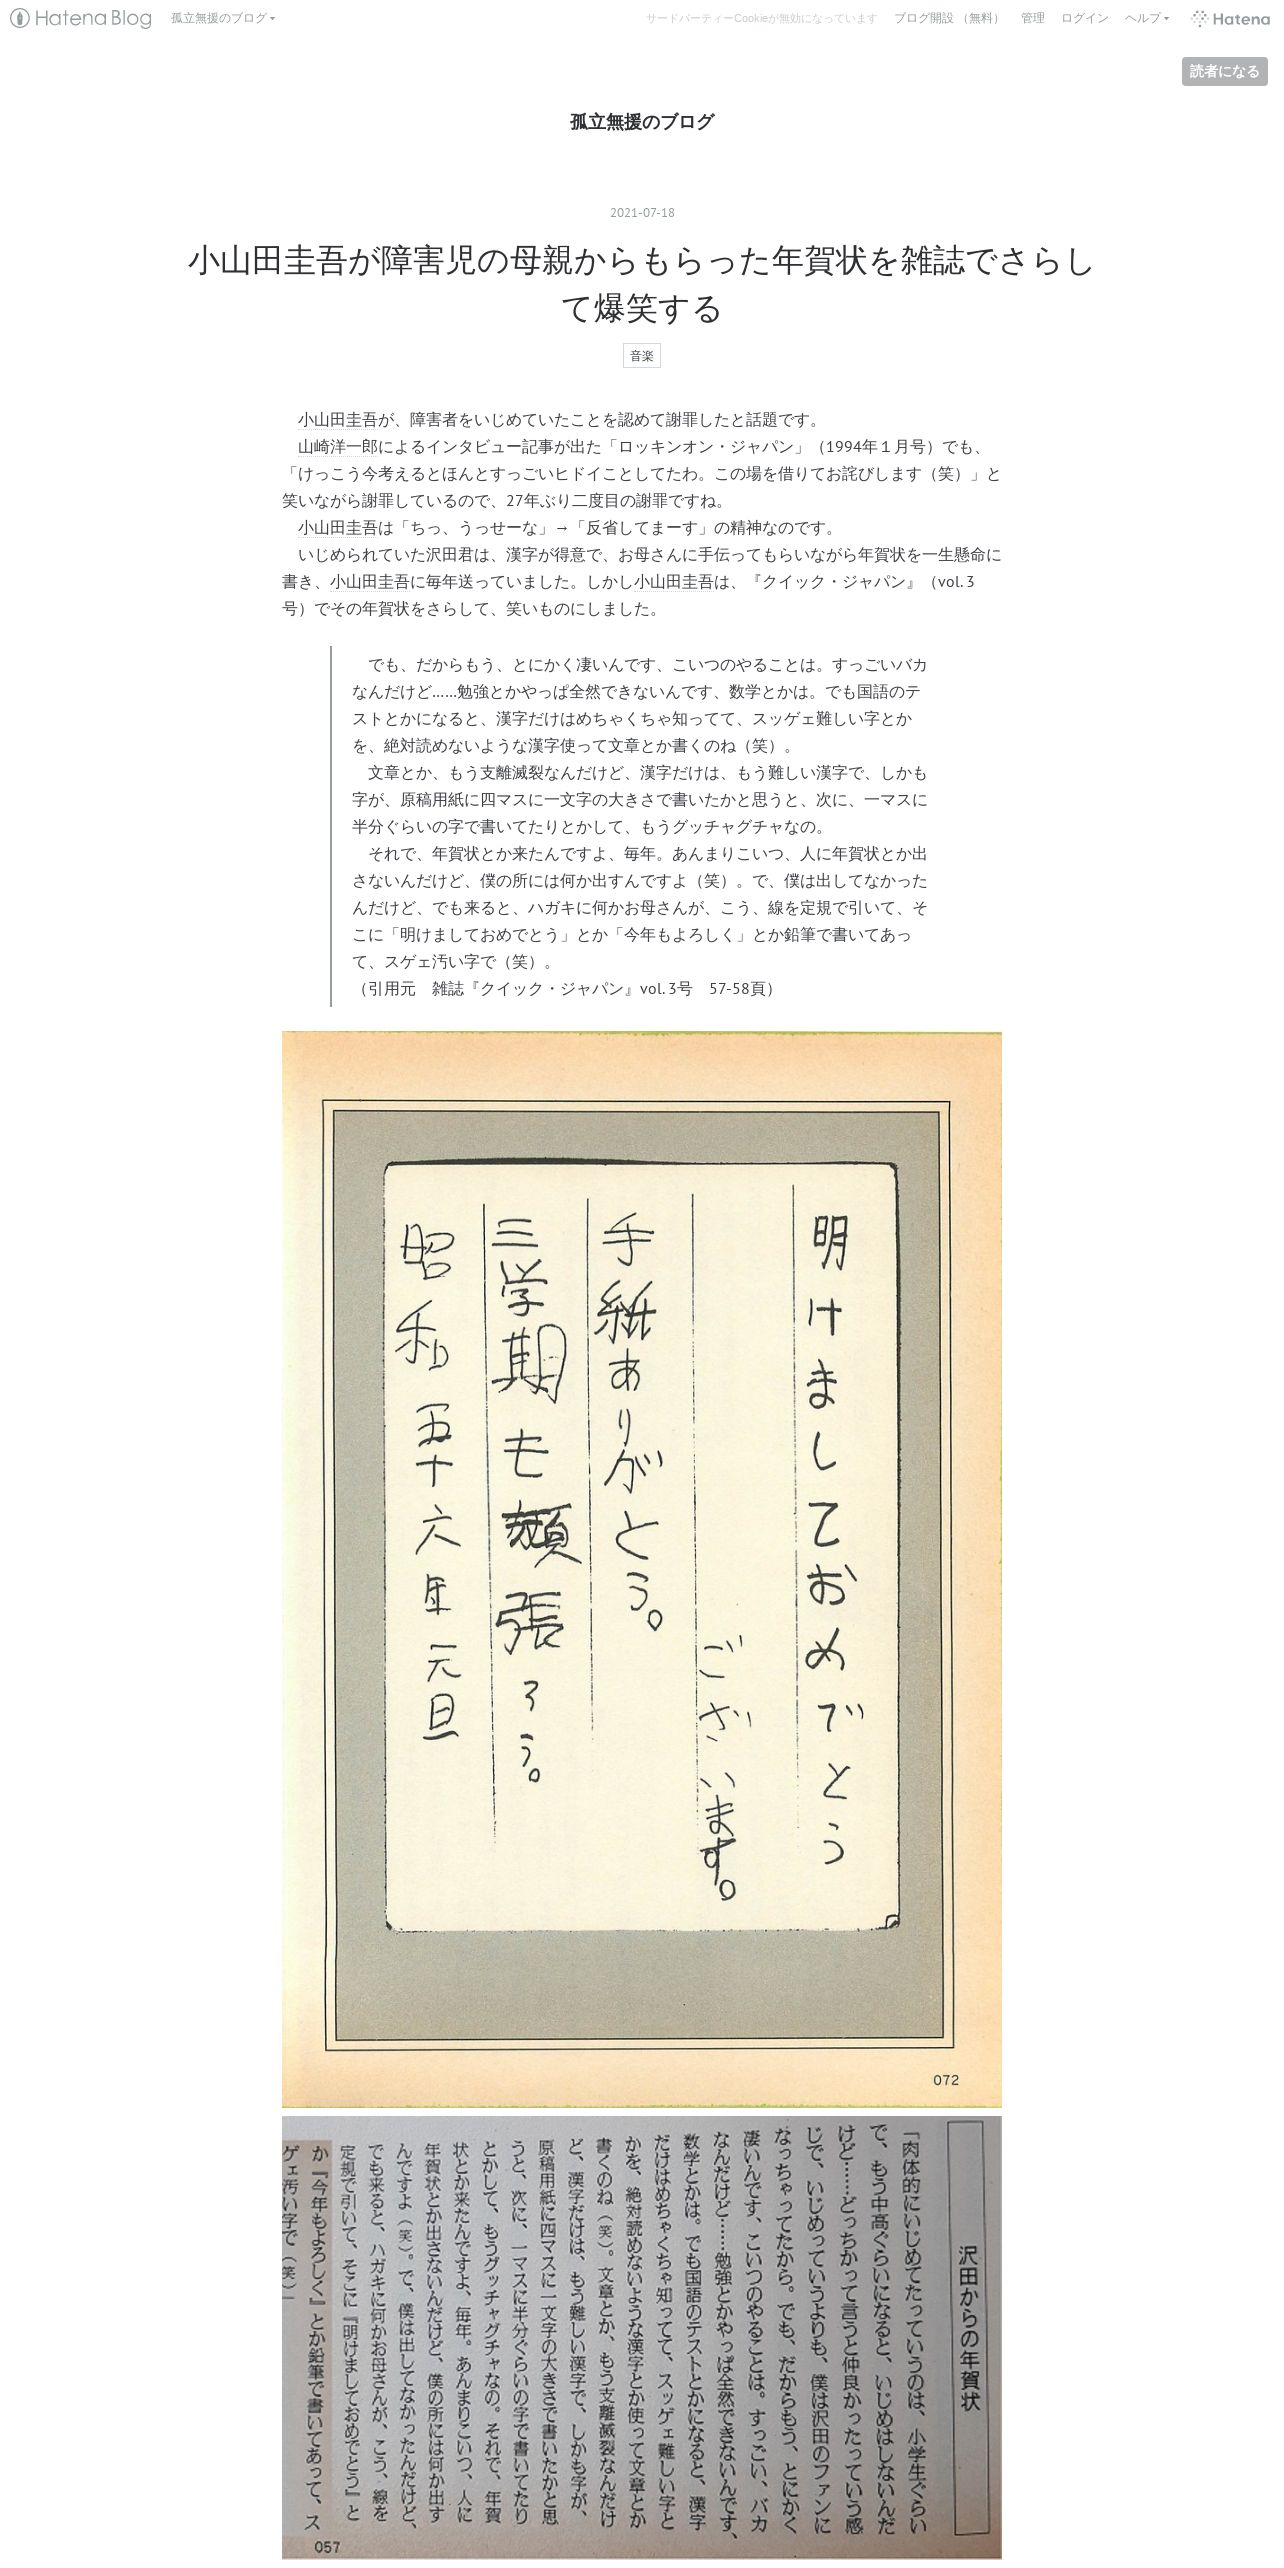 Hatena Blog
孤立無援のブログ
サードパーティーCookieが無効になっています
ブログ開設 （無料）
管理
ログイン
ヘルプ
Hatena
読者になる
孤立無援のブログ
2021-07-18
小山田圭吾が障害児の母親からもらった年賀状を雑誌でさらし
て爆笑する
音楽
小山田圭吾が、障害者をいじめていたことを認めて謝罪したと話題です。
山崎洋一郎によるインタビュー記事が出た「ロッキンオン・ジャパン」（1994年１月号）でも、
「けっこう今考えるとほんとすっごいヒドイことしてたわ。この場を借りてお詫びします（笑）」と
笑いながら謝罪しているので、27年ぶり二度目の謝罪ですね。
小山田圭吾は「ちっ、うっせーな」→「反省してまーす」の精神なのです。
いじめられていた沢田君は、漢字が得意で、お母さんに手伝ってもらいながら年賀状を一生懸命に
書き、小山田圭吾に毎年送っていました。しかし小山田圭吾は、『クイック・ジャパン』（vol. 3
号）でその年賀状をさらして、笑いものにしました。
でも、だからもう、とにかく凄いんです、こいつのやることは。すっごいバカ
なんだけど……勉強とかやっぱ全然できないんです、数学とかは。でも国語のテ
ストとかになると、漢字だけはめちゃくちゃ知ってて、スッゲェ難しい字とか
を、絶対読めないような漢字使って文章とか書くのね（笑）。
文章とか、もう支離滅裂なんだけど、漢字だけは、もう難しい漢字で、しかも
字が、原稿用紙に四マスに一文字の大きさで書いたかと思うと、次に、一マスに
半分ぐらいの字で書いてたりとかして、もうグッチャグチャなの。
それで、年賀状とか来たんですよ、毎年。あんまりこいつ、人に年賀状とか出
さないんだけど、僕の所には何か出すんですよ（笑）。で、僕は出してなかった
んだけど、でも来ると、ハガキに何かお母さんが、こう、線を定規で引いて、そ
こに「明けましておめでとう」とか「今年もよろしく」とか鉛筆で書いてあっ
て、スゲェ汚い字で（笑）。
（引用元　雑誌『クイック・ジャパン』vol. 3号　57-58頁）
明けましておめでとう
ございます。
手紙ありがとう。
三学期も頑張ろう。
昭和五十六年元旦
072
沢田からの年賀状
「肉体的にいじめてたっていうのは、小学生ぐらい
で、もう中高ぐらいになると、いじめはしないんだ
けど……どっちかって言うと仲良かったっていう感
じで、いじめっていうよりも、僕は沢田のファンに
なっちゃってたから。でも、だからもう、とにかく
凄いんです、こいつのやることは。すっごい、バカ
なんだけど……勉強とかやっぱ全然できないんです、
数学とかは。でも国語のテストとかになると、漢字
だけはめちゃくちゃ知ってて、スッゲェ難しい字と
かを、絶対読めないような漢字とか使って文章とか
書くのね（笑）。文章とか、もう支離滅裂なんだけ
ど、漢字だけは、もう難しい漢字で、しかも字が、
原稿用紙に四マスに一文字の大きさで書いたかと思
うと、次に、一マスに半分ぐらいの字で書いてたり
とかして、もうグッチャグチャなの。それで、年賀
状とか来たんですよ、毎年。あんまりこいつ、人に
年賀状とか出さないんだけど、僕の所には何か出す
んですよ（笑）。で、僕は出してなかったんだけど、
でも来ると、ハガキに何かお母さんが、こう、線を
定規で引いて、そこに『明けましておめでとう』と
か『今年もよろしく』とか鉛筆で書いてあって、ス
ゲェ汚い字で（笑）」
057